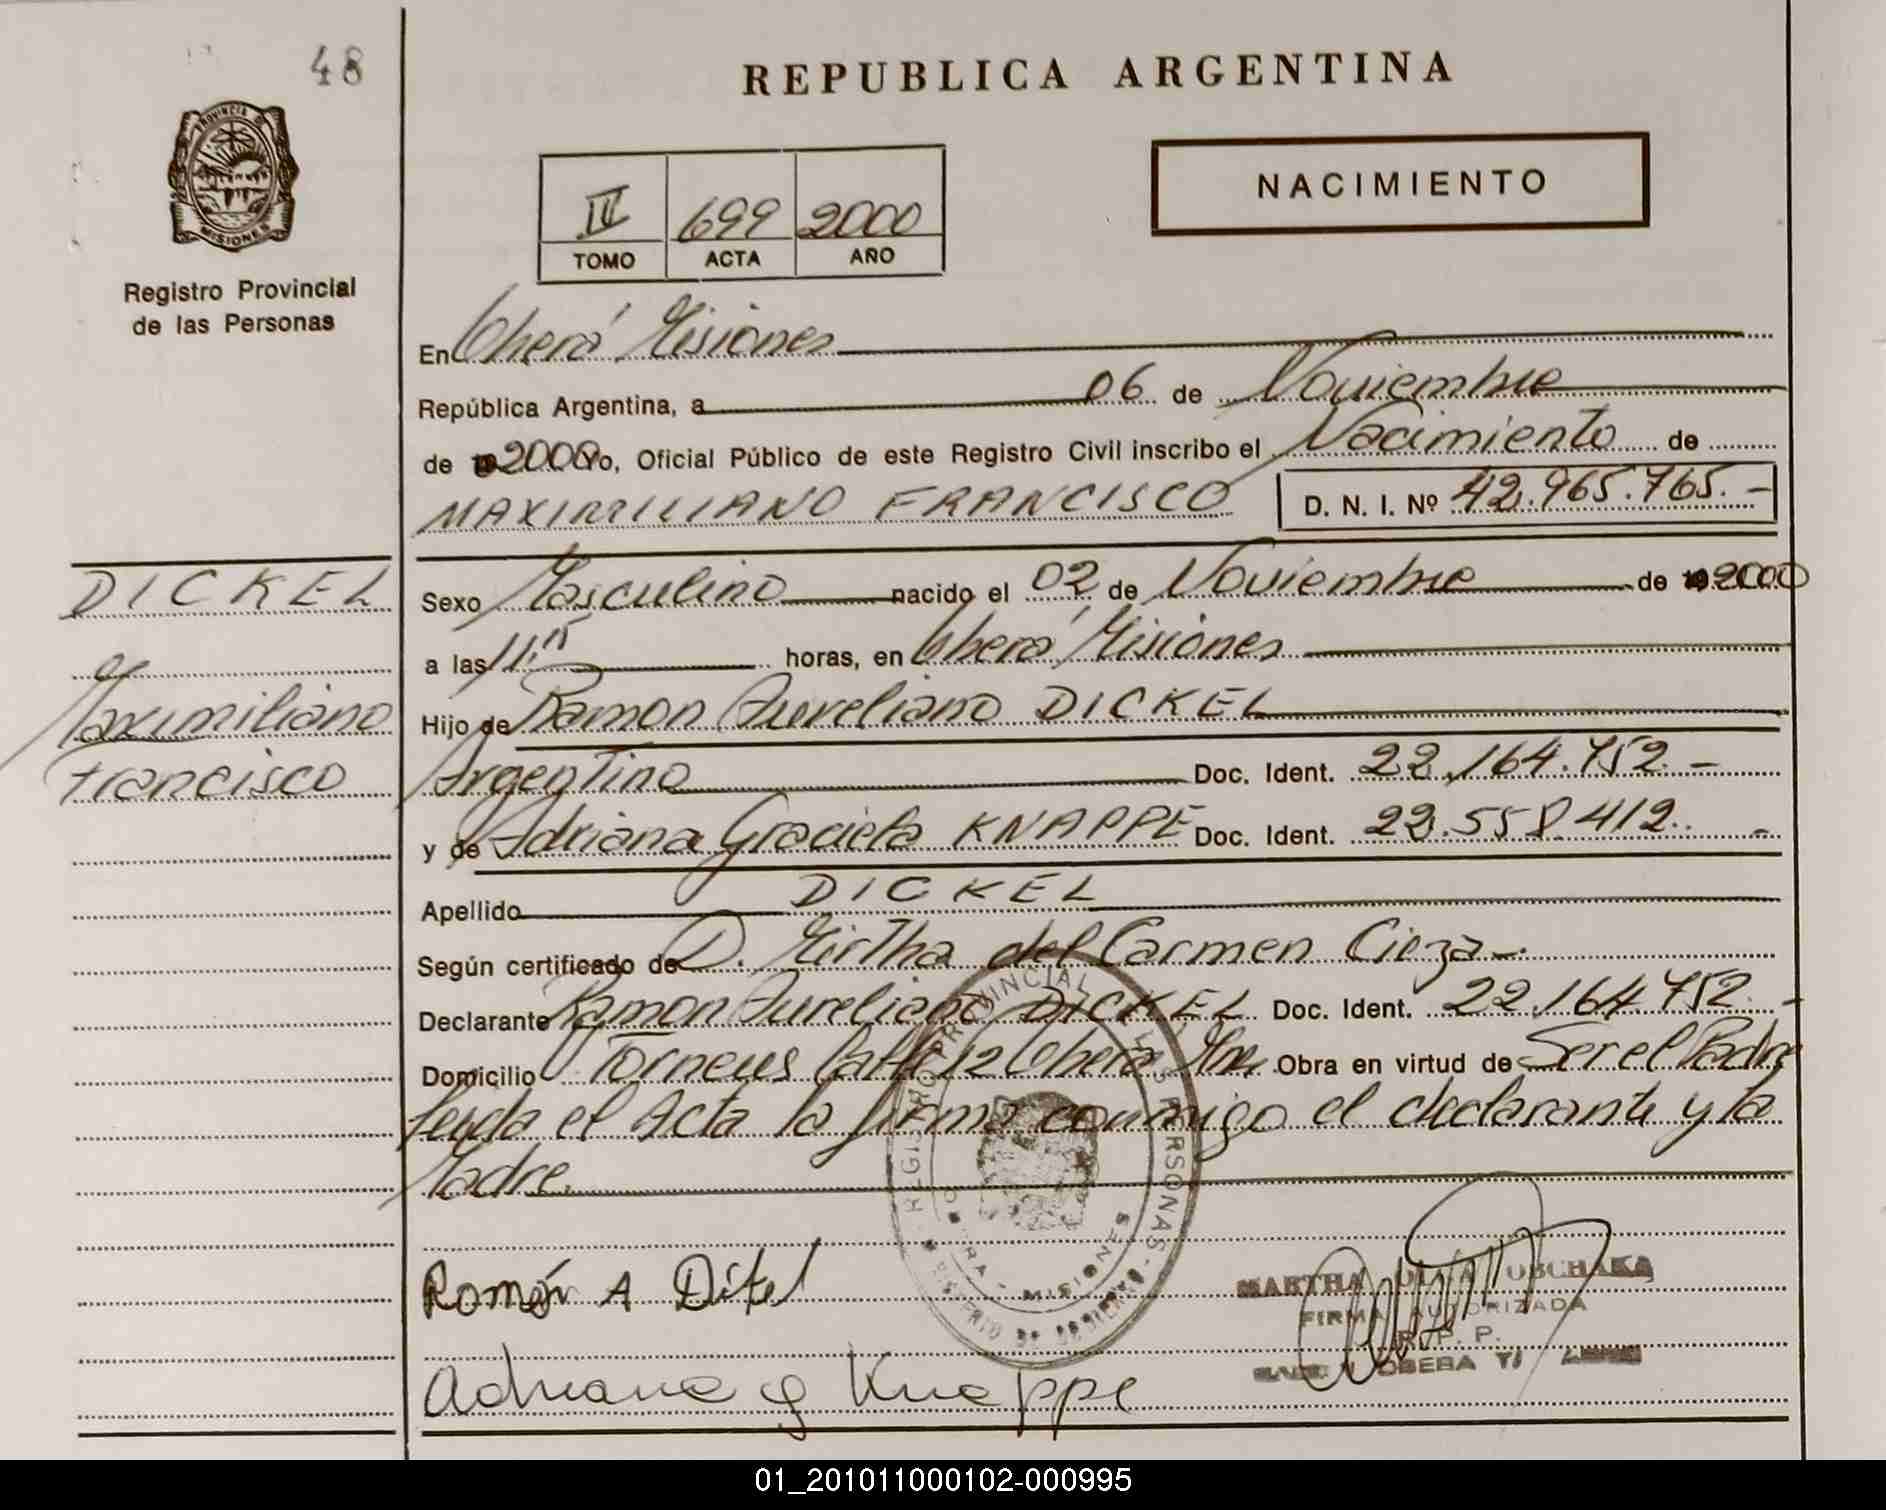 48
REPUBLICA ARGENTINA
PROVINCIA DE
MISIONES
NACIMIENTO
IV 699 2000
TOMO ACTA AÑO
Registro Provincial
de las Personas
En Oberá Misiones
República Argentina, a 06 de Noviembre
de 2000 Yo, Oficial Público de este Registro Civil inscribo el Nacimiento de
MAXIMILIANO FRANCISCO D. N. I. Nº 42.965.765.-
DICKEL
Maximiliano
Francisco
Sexo Masculino nacido el 02 de Noviembre de 2000
a las 11.15 horas, en Oberá Misiones
Hijo de Ramon Aureliano DICKEL
Argentino Doc. Ident. 22.164.752.-
y de Adriana Graciela KNAPPE Doc. Ident. 22.558.412. -
Apellido DICKEL
Según certificado de D. Mirtha del Carmen Cieza-.
Declarante Ramon Aureliano DICKEL Doc. Ident. 22.164.752.-
Domicilio Torneus Calle 12 Oberá Mnes Obra en virtud de Ser el Padre
leida el Acta la firma conmigo el declarante y la
Madre.
REGISTRO PROVINCIAL DE LAS PERSONAS
MISIONES
Román A Ditel
MARTHA
FIRMA AUTORIZADA
R. P. P.
OBERA
Adriana g Knappe
01_201011000102-000995